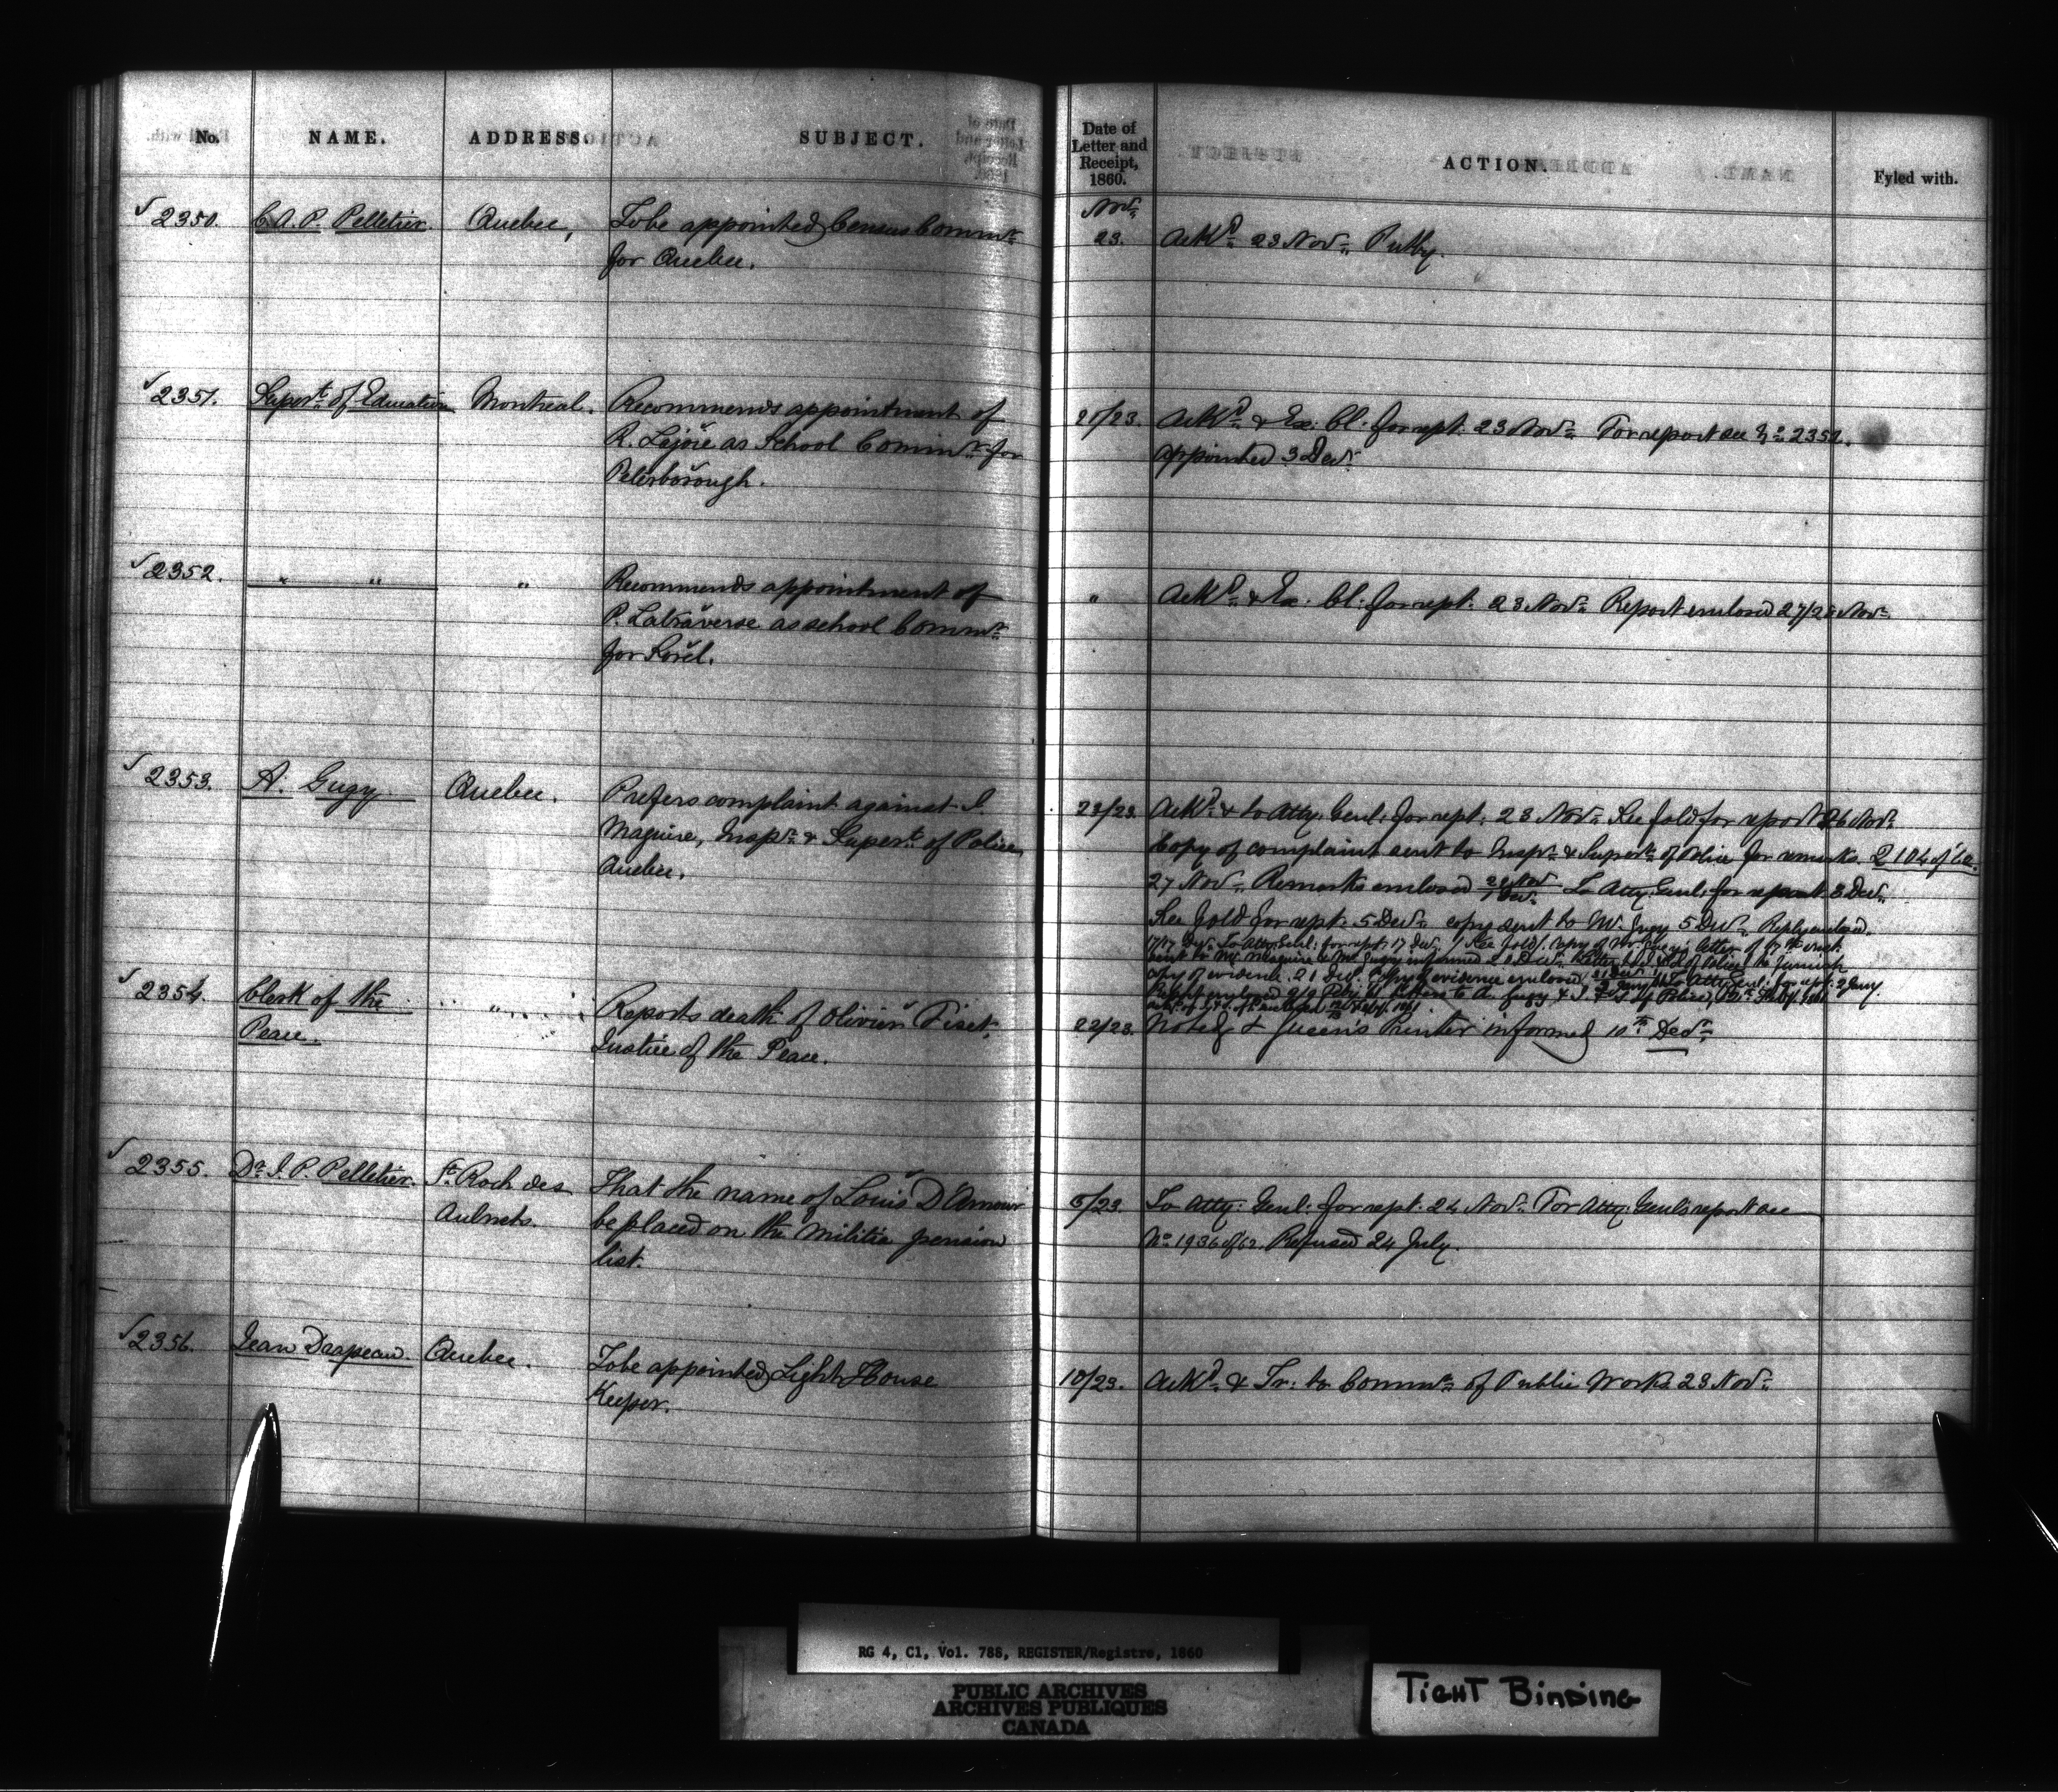 No. NAME. ADDRESS. SUBJECT. Date of Letter and Receipt, 1860. ACTION. Fyled with.
Novr
√2350. C.A.P. Pelletier. Quebec, To be appointed Census Commr 23. Ackd 23 Novr Putby.
for Quebec.
√2351. Supert of Education Montreal. Recommends appointment of 21/23. Ackd & Ex. Cl. for rept. 23 Novr For report see No 2352.
R. Lajoie as School Commr for appointed 3 Decr
Peterborough.
√2352. " " " Recommends appointment of " Ackd & Ex. Cl. for rept. 23 Novr Report enclosed 27/28 Novr
P. Latraverse as school Commr
for Sorel.
√2353. A. Gugy Quebec. Prefers complaint against J. 23/23. Ackd & to Atty. Genl. for rept. 23 Novr See fold for report 26 Novr
Maguire, Inspr & Supert of Police Copy of complaint sent to Inspr & Supert of Police for remarks 2104 of 60.
Quebec. 27 Novr Remarks enclosed To Atty. Genl. for report 3 Decr
See fold for rept. 5 Decr copy sent to Mr Gugy 5 Decr Reply enclosed
17/17 Decr To Atty. Genl. for rept. 17 Decr (See fold) Copy of Mr Gugy's letter of 17th inst.
sent to Mr Maguire & Mr Gugy informed
copy of evidence 21 Decr Copy of evidence enclosed To Atty. Genl. for rept. 2 Jany.
√2354. Clerk of the " Reports death of Olivier Fiset,
Peace. Justice of the Peace. 22/23. Noted & Queen's Printer informed 10th Decr
√2355. Dr J. P. Pelletier. St Roch des That the name of Louis D'Amour 5/23. To Atty. Genl. for rept. 24 Novr For Atty. Genl's report see
Aulnets. be placed on the militia pension No 1936 of 62. Refused 24 July.
list.
√2356. Jean Darapeau. Quebec. To be appointed Light House 10/23. Ackd & Tr. to Commr of Public Works 23 Novr
Keeper.
RG 4, C1, Vol. 788, REGISTER/Registre, 1860
PUBLIC ARCHIVES
ARCHIVES PUBLIQUES
CANADA
TIGHT BINDING